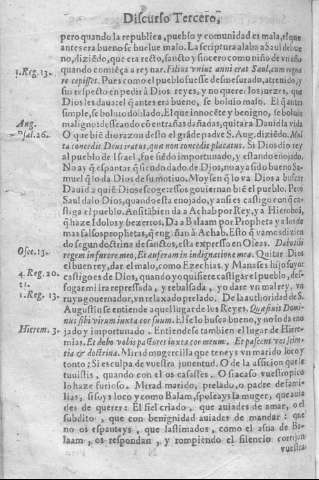 Discurso Tercero,
pero quando la republica, pueblo y comunidad es mala, el que
antes era bueno se buelue malo. La scriptura alaba a Saul de bue
no, diziēdo, que era recto, sancto y sincero como niño de vn año
1. Reg. 13. quando começa a reynar. Filius vnius anni erat Saul, cum regna
re cepisset. Pues como el pueblo fuesse desmesurado, atreuido, y
sus respecto en pedir à Dios reyes, y no querer los juezes, que
Dios les daua: el q̄ antes era bueno, se boluio malo. El q̄ antes
simple, se boluio doblado. El que innocēte y benigno, se boluio
Aug. maligno desseando cō entrañas dañadas, quitar a Dauid la vida
psal. 26. O que biē dixo razon desto el grāde padre S. Aug. diziēdo. Mul
ta concedit Deus iratus, quæ non concedit placatus. Si Dios dio rey
al pueblo de Israel, fue siēdo importunado, y estando enojado.
No ay q̄ espantar q̄ siendo dado de Dios, no aya sido bueno Sa-
muel q̄ lo da Dios de su motiuo. Moysen q̄ lo va Dios a buscar
Dauid a quiē Dios escoge; essos gouiernan biē el pueblo. Pero
Saul dalo Dios, quando esta enojado, y ansi es castigo con q̄ cas
tiga el pueblo. Ansi tābien da a Achab por Rey, y a Hieroboā,
q̄ haze Idolos y bezerros, Da a Balaam por Propheta, y a los de
mas falsos prophetas, q̄ engañan à Achab. Esto q̄ vamos diziēn
Osee. 13. do segun doctrina de sanctos, esta expresso en Oseas. Dabo tibi
regem in furore meo, & auferam in indignatione mea. Quitar Dios
4. Reg. 20. el buen rey, dar el malo, como Ezechias, y Manases hijo suyo:
21. castigo es de Dios, quando yo quisiere castigar el pueblo, des-
fogar mi ira represada, y rebalsada, yo dare vn mal rey, vn
1. Reg. 13. ruyn gouernador, vn relaxado prelado. De la authoridad de S.
Augustin se entiende aquel lugar de los Reyes. Quæsiuit Domi-
nus sibi virum iuxta cor suum. El se lo busca bueno, y no lo da eno
Hierem. 3. jado y importunado. Entiendese tambien el lugar de Hiere-
mias. Et dabo vobis pastores iuxta cor meum. Et pascent vos scien-
tia & doctrina. Mirad muger si la que teneys vn marido loco y
tonto; si es culpa de vuestra juventud. O de la afficion que le
tuuistis, quando con el os casastes. O si acaso vuestro pico
lo haze furioso. Mirad marido, prelado, o padre de fami-
lias, si soys loco y como Balam, espoleays la muger, que auia
des de querer: El fiel criado, que auiades de amar, o el
subdito, que con benignidad auiades de mandar: que
no os espanteys, que lastimados, como el asna de Ba-
laam, os respondan, y rompiendo el silencio corrijan
vuestra